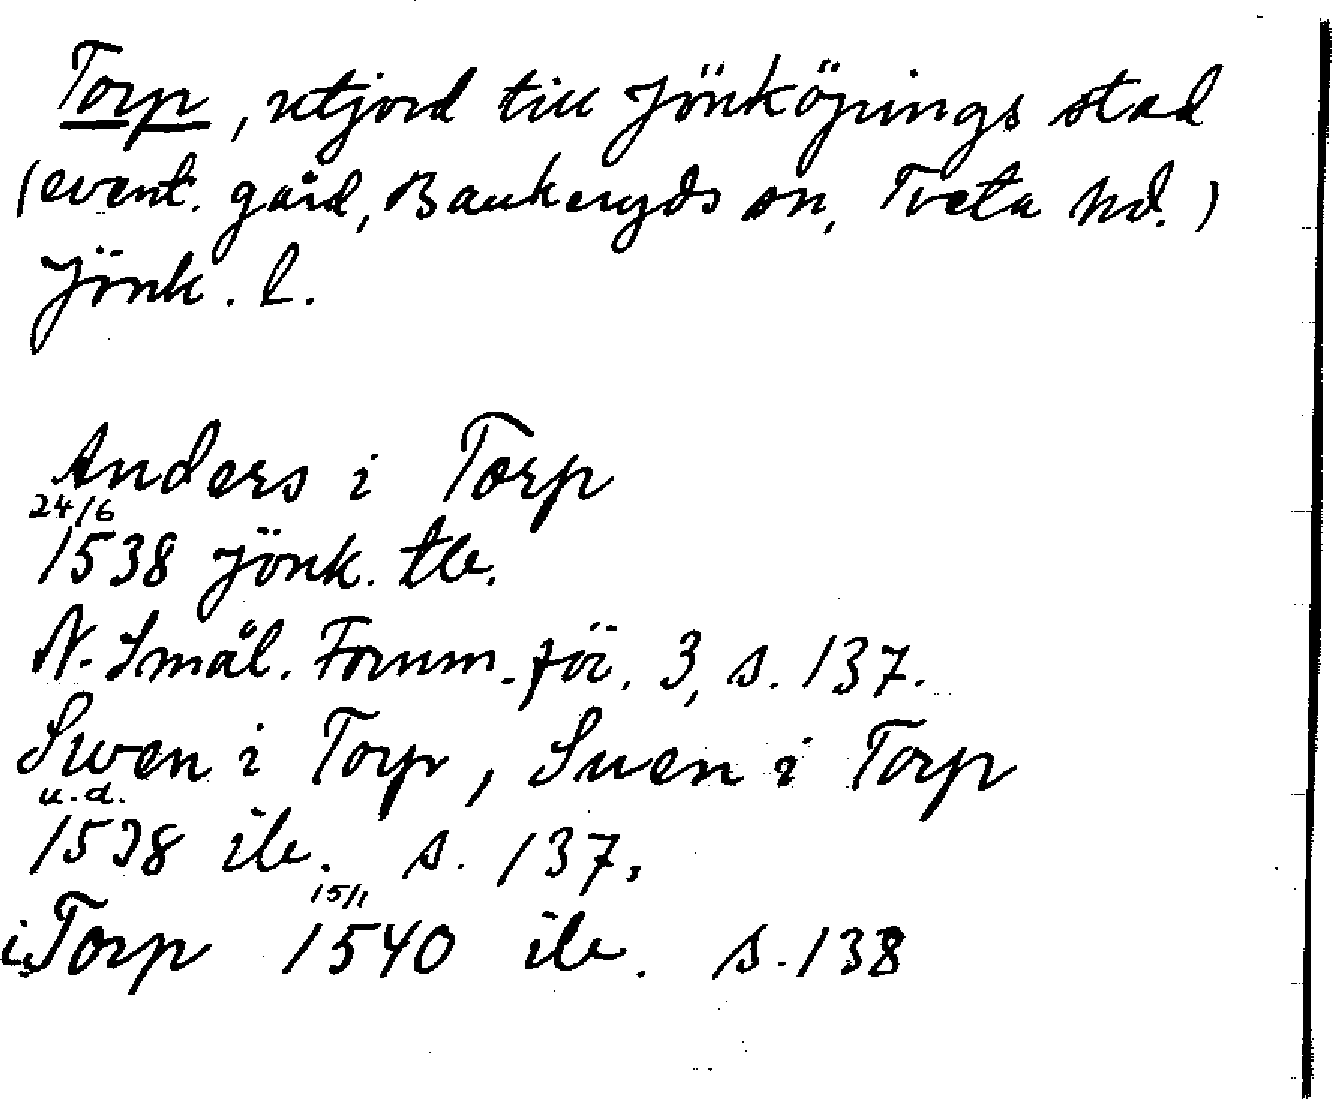 Torp, utjord till Jönköpings stad
(event. gård, Bankeryds sn, Tveta hd.)
Jönk. l.
Anders i Torp
24/6
1538 Jönk. tb.
N. Smål. Fornm.för. 3, s. 137.
Swen i Torp, Suen i Torp
u.d.
1538 ib. s. 137.
15/1
i Torp 1540 ib. s. 138